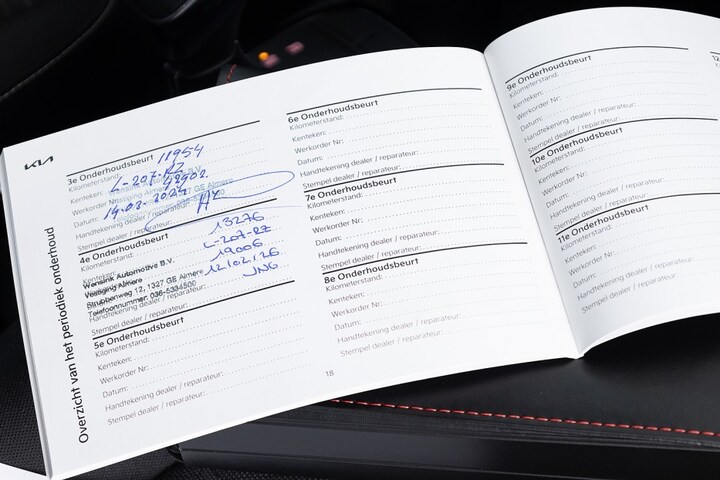 KIA
Overzicht van het periodiek onderhoud
3e Onderhoudsbeurt
Kilometerstand: 11954
Kenteken: L-207-RZ
Werkorder Nr:
Datum: 14-03-2024
Handtekening dealer / reparateur:
Stempel dealer / reparateur:
4e Onderhoudsbeurt
13276
Kenteken: L-207-RZ
Wensink Automotive B.V.
Vestiging Almere
19006
Strubbenweg 12, 1327 GE Almere
12/02/26
Telefoonnummer: 036-5334500
JNG
Stempel dealer / reparateur:
5e Onderhoudsbeurt
Kilometerstand:
Kenteken:
Werkorder Nr:
Datum:
Handtekening dealer / reparateur:
Stempel dealer / reparateur:
6e Onderhoudsbeurt
Kilometerstand:
Kenteken:
Werkorder Nr:
Datum:
Handtekening dealer / reparateur:
Stempel dealer / reparateur:
7e Onderhoudsbeurt
Kilometerstand:
Kenteken:
Werkorder Nr:
Datum:
Handtekening dealer / reparateur:
Stempel dealer / reparateur:
8e Onderhoudsbeurt
Kilometerstand:
Kenteken:
Werkorder Nr:
Datum:
Handtekening dealer / reparateur:
Stempel dealer / reparateur:
18
9e Onderhoudsbeurt
Kilometerstand:
Kenteken:
Werkorder Nr:
Datum:
Handtekening dealer / reparateur:
Stempel dealer / reparateur:
10e Onderhoudsbeurt
Kilometerstand:
Kenteken:
Werkorder Nr:
Datum:
Handtekening dealer / reparateur:
Stempel dealer / reparateur:
11e Onderhoudsbeurt
Kilometerstand:
Kenteken:
Werkorder Nr:
Datum:
Handtekening dealer / reparateur:
Stempel dealer / reparateur: